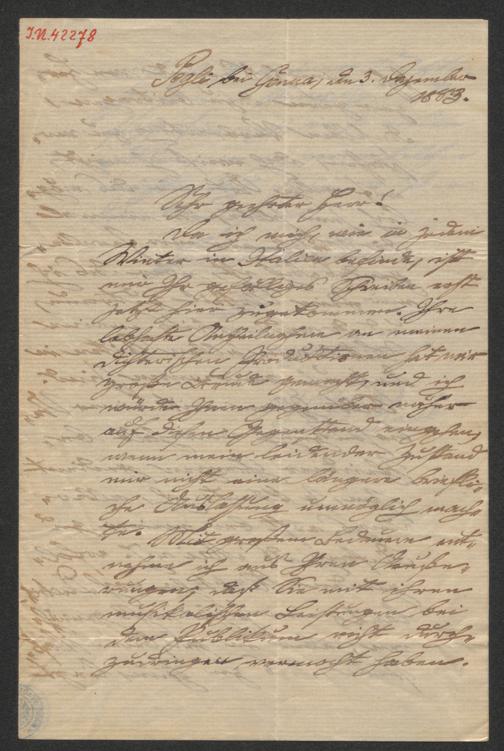 I.N. 42278
Pegli, bei Genua, den 3. Dezember
1883.
Sehr geehrter Herr!
Da ich mich, wie in jedem
Winter in Italien befinde, ist
mir Ihr gefälliges Schreiben erst
jetzt hier zugekommen. Ihre
lebhafte Antheilnahme an meinen
dichterischen Produktionen hat mir
große Freude gemacht, und ich
würde Ihnen gegenüber näher
auf diesen Gegenstand eingehen,
wenn mein leidender Zustand
mir nicht eine längere briefli-
che Auslassung unmöglich mach-
te. Mit großem Bedauern ent-
nehme ich aus Ihren Äuße-
rungen, daß Sie mit ihren
musikalischen Leistungen bei
dem Publikum nicht durch-
zudringen vermocht haben.